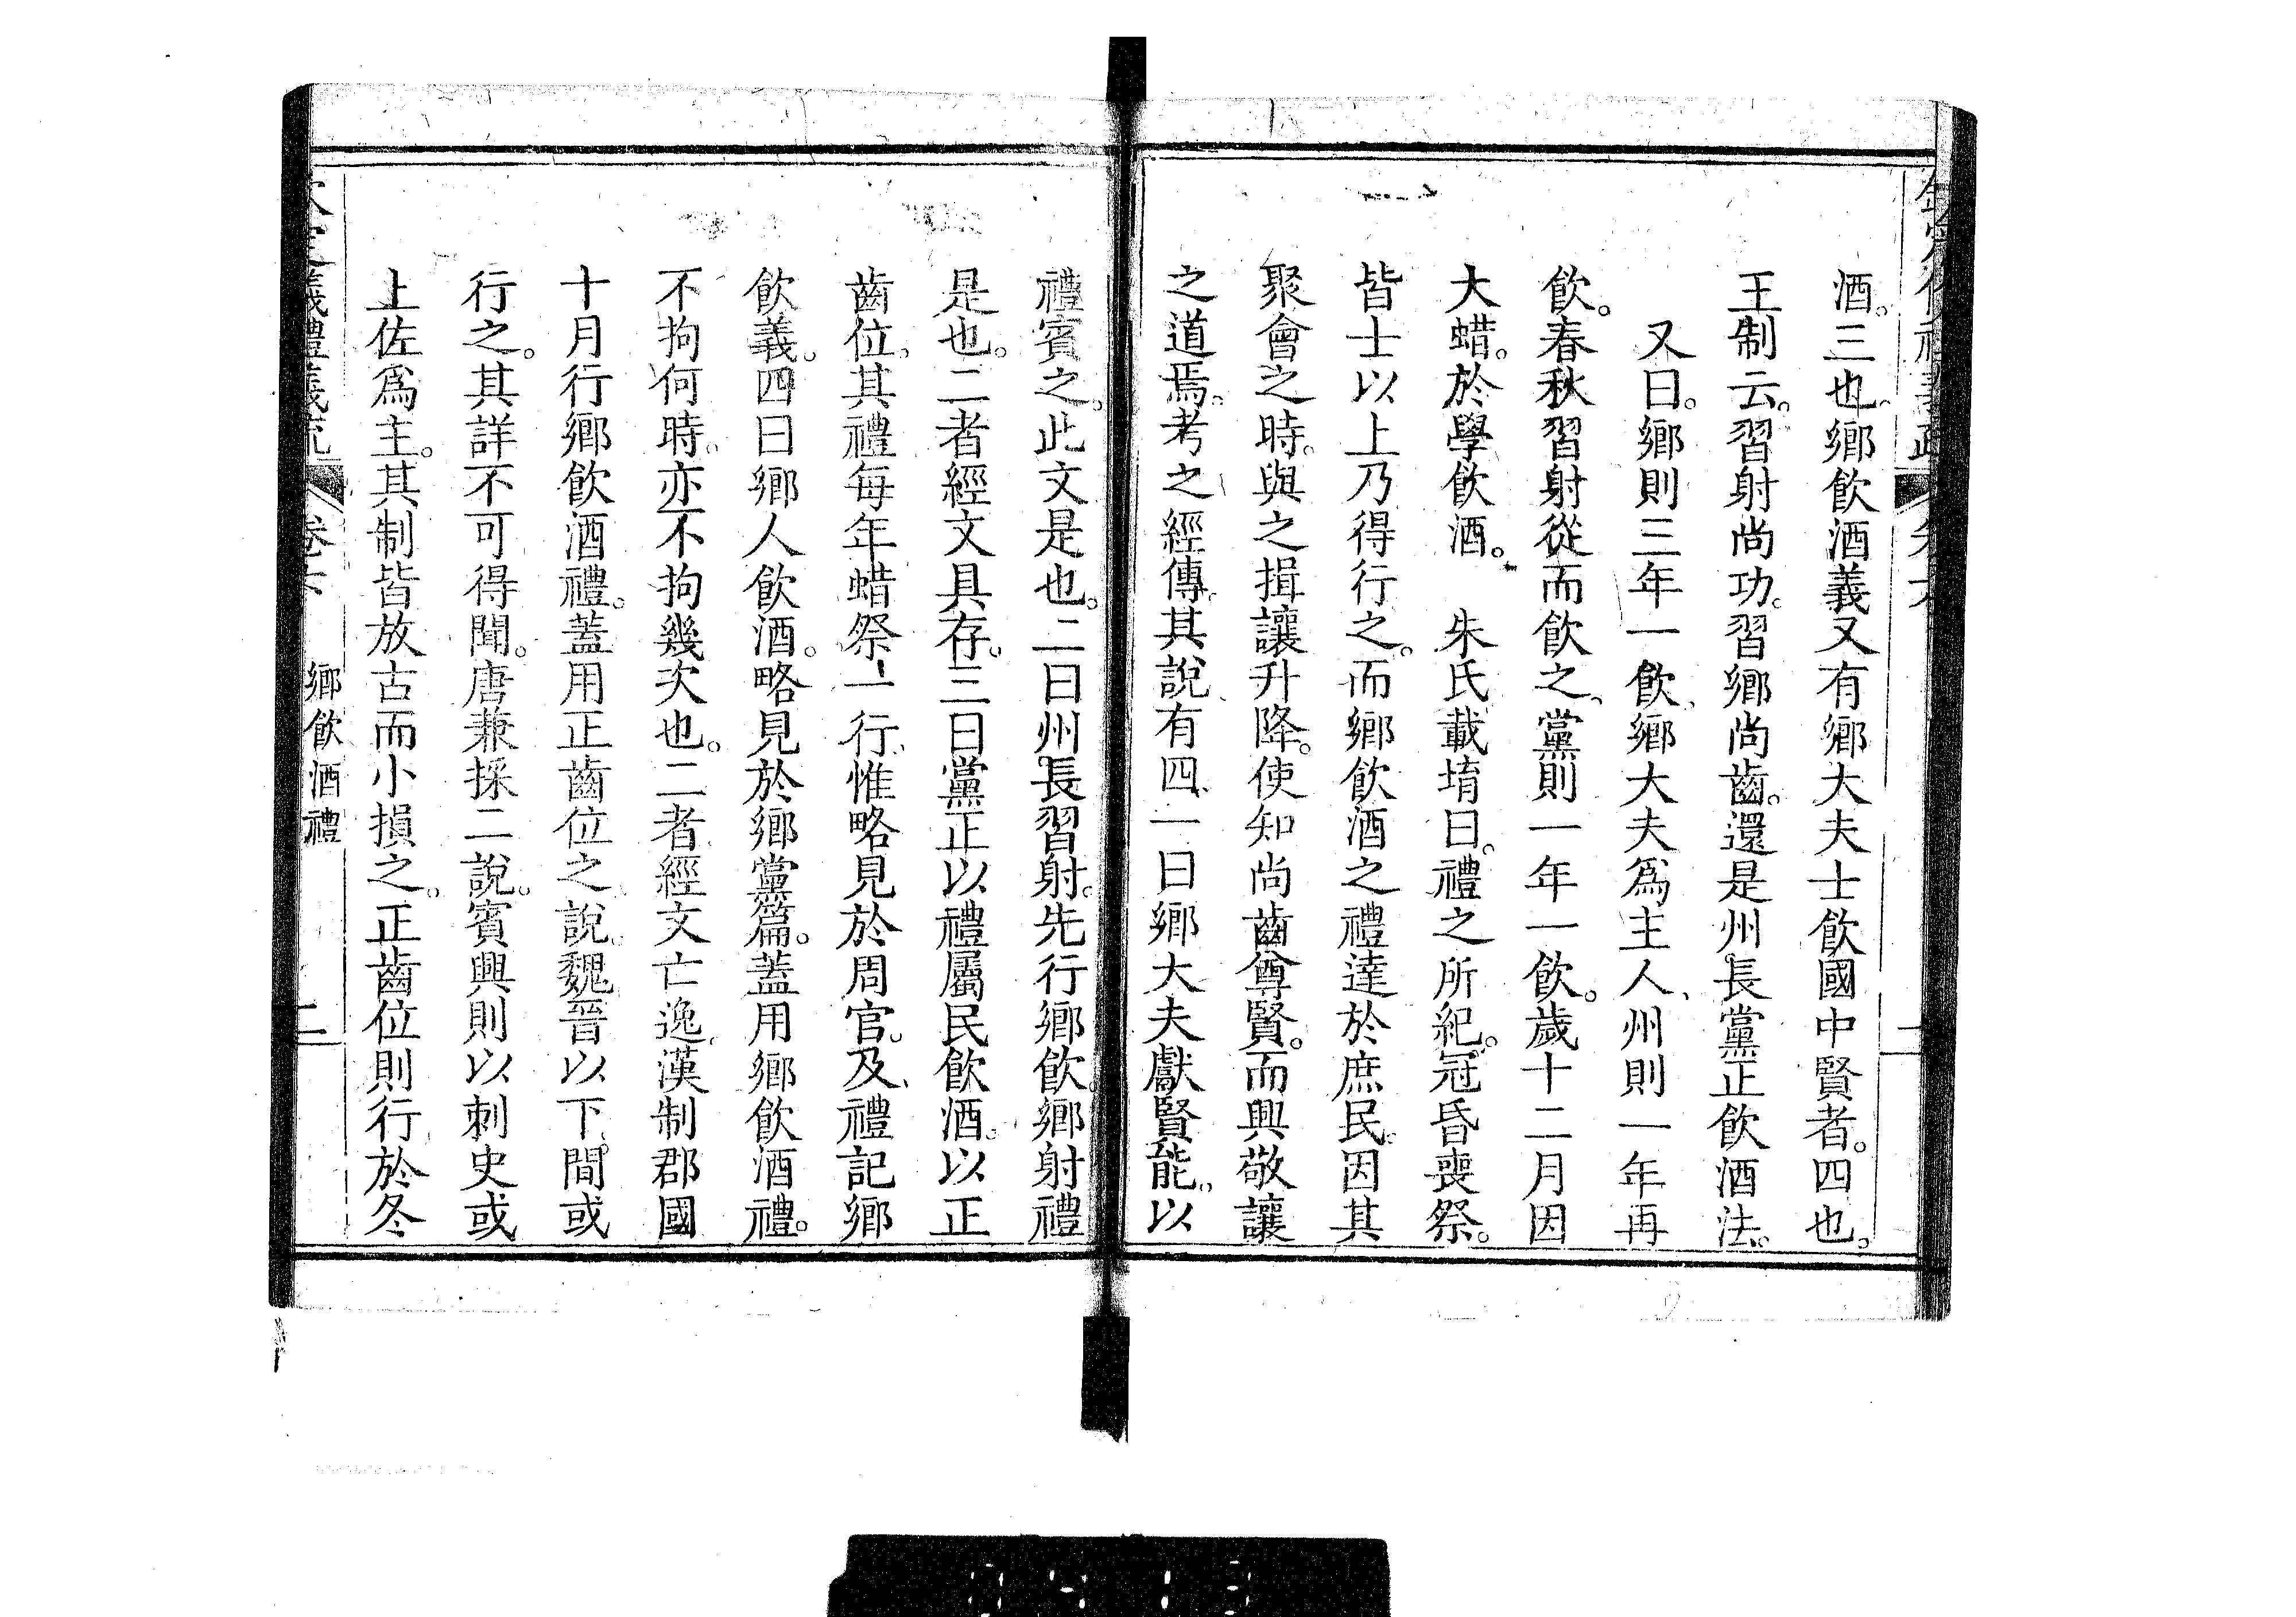 酒。三也。鄉飲酒義又有鄉大夫士飲國中賢者。四也。
王制云。習射尚功。習鄉尚齒。還是州長黨正飲酒法。
又曰。鄉則三年一飲、鄉大夫爲主人、州則一年再
飲。春秋習射從而飲之、黨則一年一飲。歲十二月因
大蜡。於學飲酒。　朱氏載堉曰。禮之所紀。冠昏喪祭。
皆士以上乃得行之。而鄉飲酒之禮達於庶民。因其
聚會之時。與之揖讓升降。使知尚齒尊賢。而興敬讓
之道焉。考之經傳。其說有四、一曰鄉大夫獻賢能。以
禮賓之。此文是也。二曰州長習射。先行鄉飲。鄉射禮
是也。二者經文具存。三曰黨正以禮屬民飲酒。以正
齒位。其禮每年蜡祭一行、惟略見於周官。及、禮記鄉
飲義。四曰鄉人飲酒。略見於鄉黨篇。蓋用鄉飲酒禮。
不拘何時。亦不拘幾次也。二者經文亡逸。漢制郡國
十月行鄉飲酒禮。蓋用正齒位之說。魏晉以下。間或
行之。其詳不可得聞。唐兼採二說。賓興則以刺史或
上佐爲主。其制皆放古而小損之。正齒位則行於冬
鄉飲酒禮
二